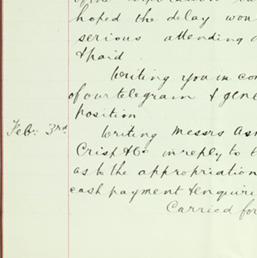 hoped the delay won
serious attending
& paid
Writing you in con
of our telegram & gene
position
Feb: 3rd Writing Messrs Asm
Crisp & Co in reply to
as to the appropriation
cash payment & enquire
Carried for